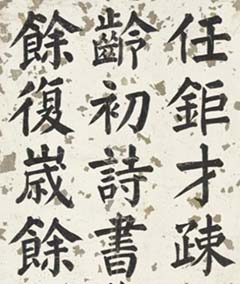 任鉅才疎
齡初詩書
餘復歳餘